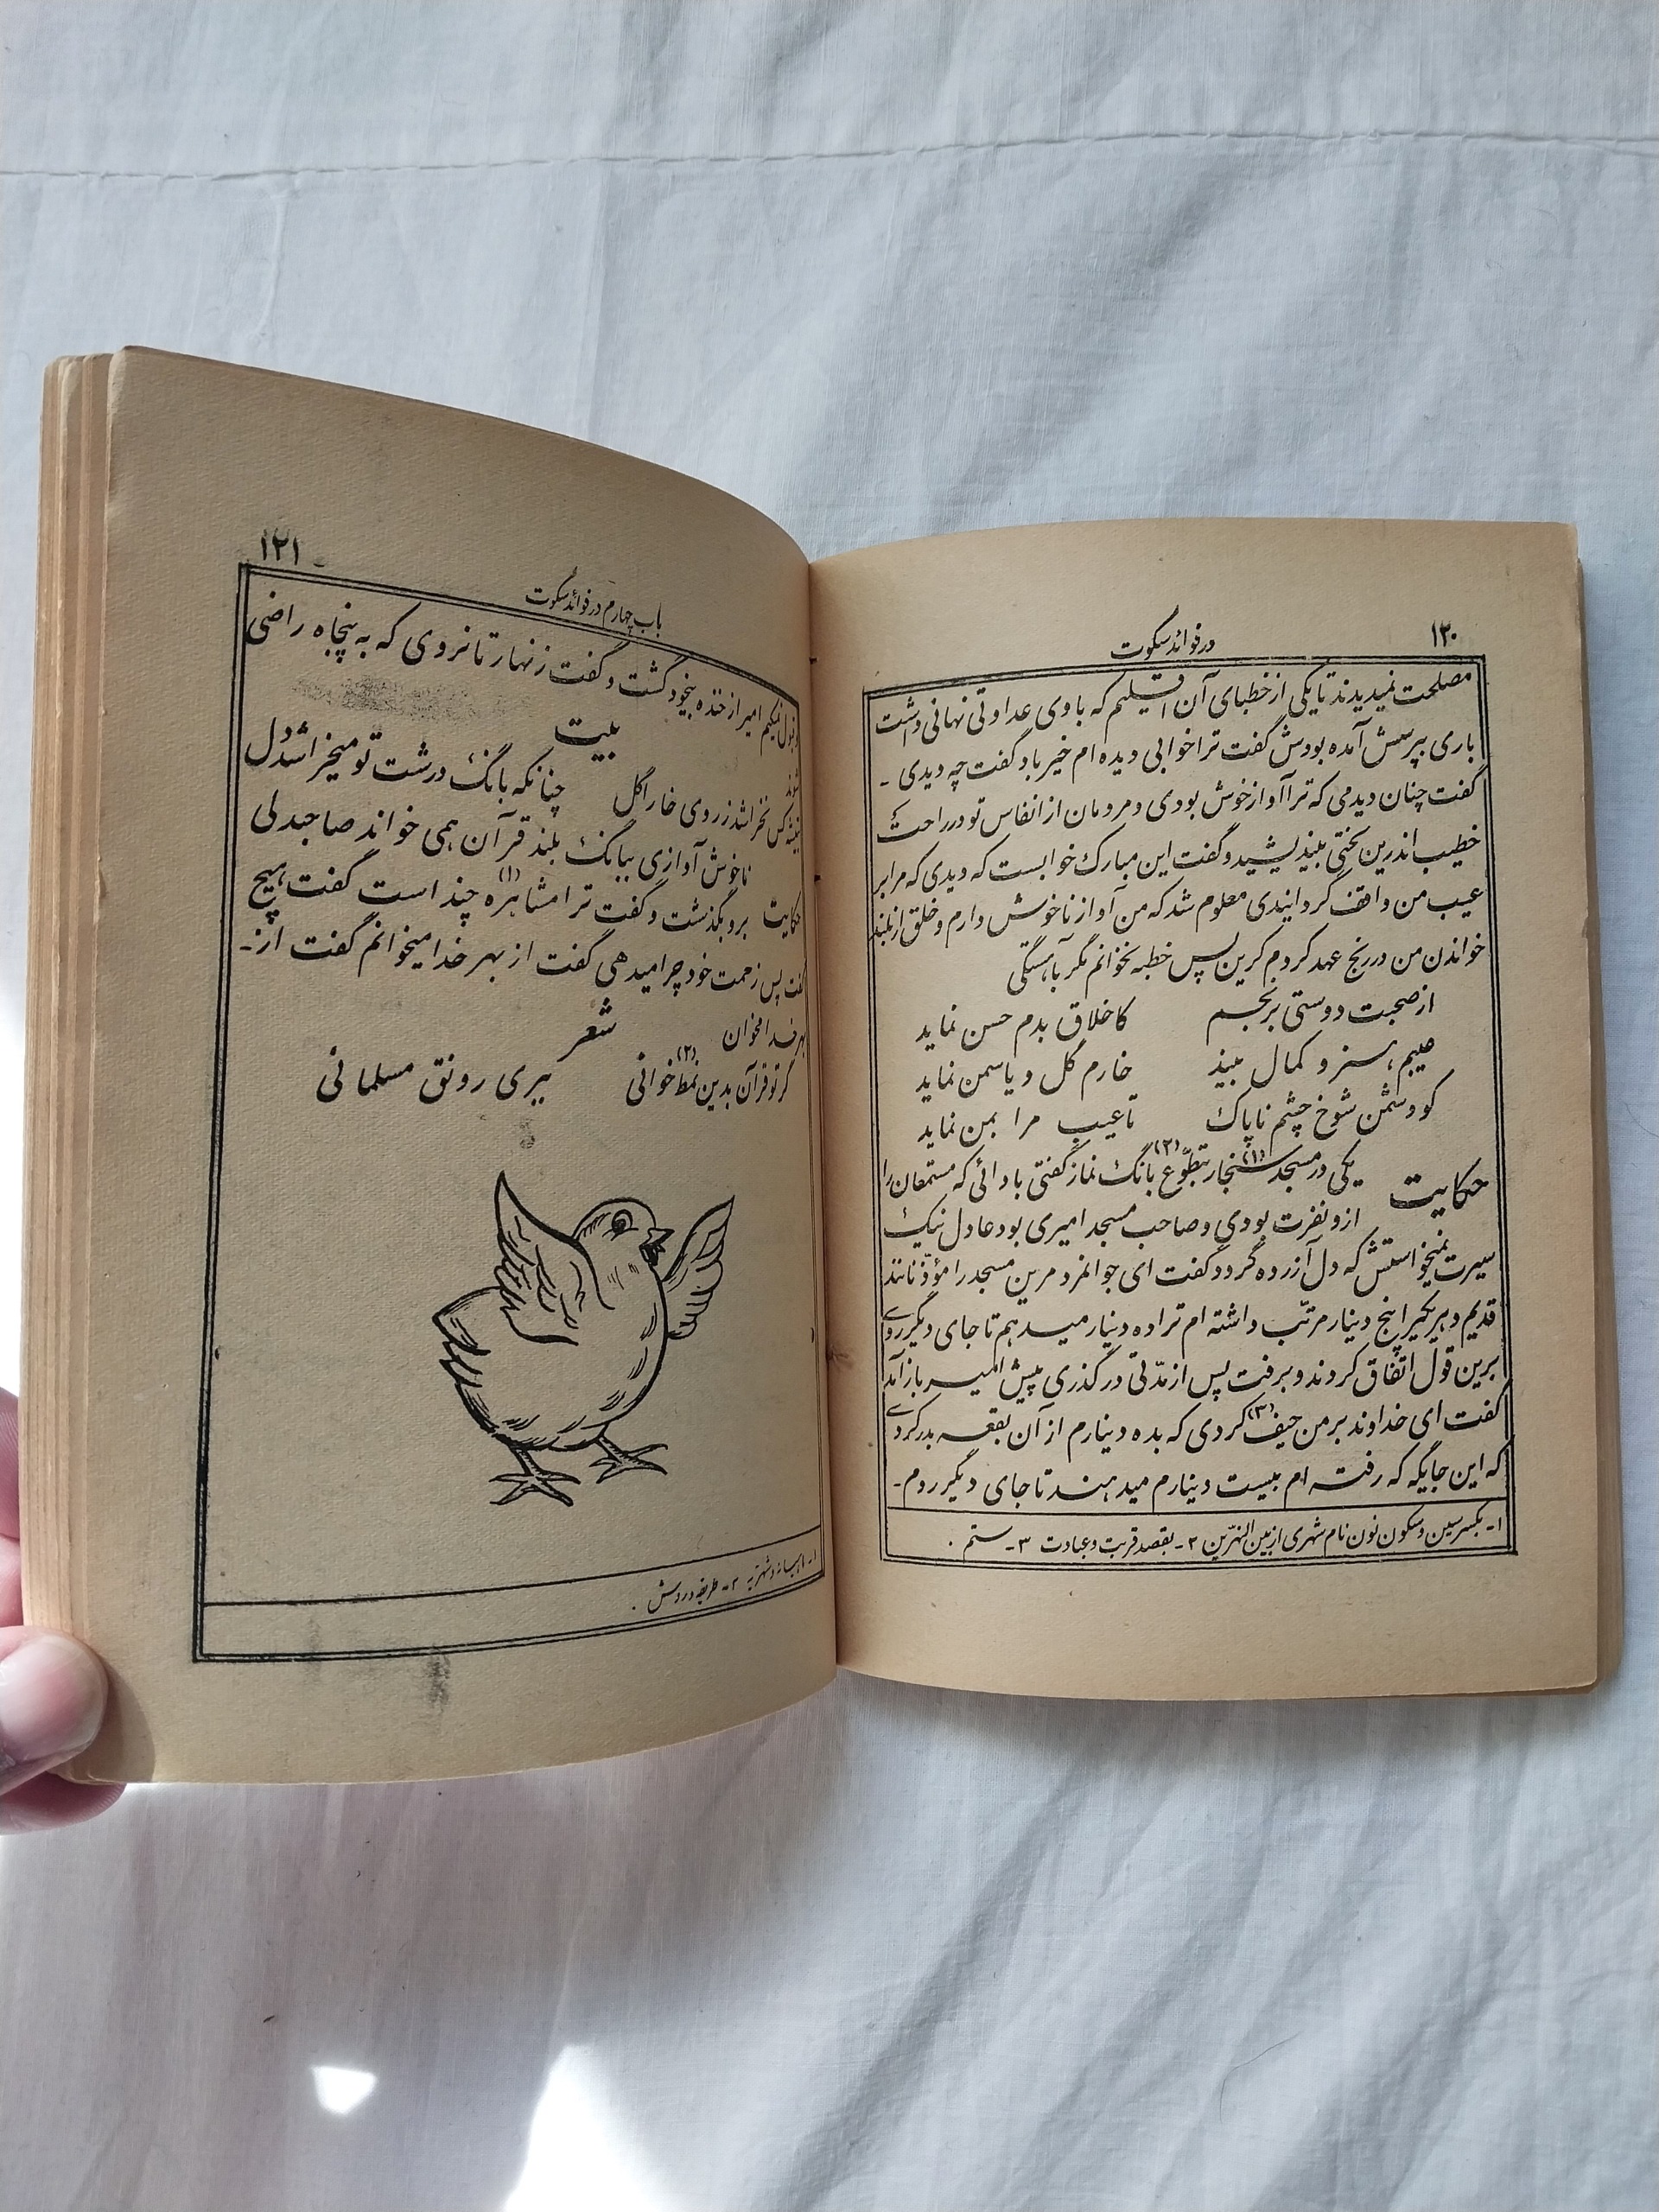 ۱۲۰
در فوائد سکوت
مصلحت نمیدیدند تا یکی از خطبای آن اقلیم که با وی عداوتی نهانی داشت
باری بپرسش آمده بودش گفت ترا خوابی دیده ام خیر باد گفت چه دیدی -
گفت چنان دیدمی که ترا آواز خوش بودی و مردمان از انفاس تو در راحت
خطیب اندرین لختی بیندیشید و گفت این مبارک خوابست که دیدی که مرا بر
عیب من واقف گردانیدی معلوم شد که من آواز ناخوش دارم و خلق از بلند
خواندن من در رنج عهد کردم کزین پس خطبه نخوانم مگر بآهستگی
از صحبت دوستی برنجم کاخلاق بدم حسن نماید
عیبم هنر و کمال بیند خارم گل و یاسمن نماید
کو دشمن شوخ چشم ناپاک تا عیب مرا بمن نماید
حکایت یکی در مسجد سنجار (۱) بتطوّع (۲) بانگ نماز گفتی بادائی که مستمعان را
ازو نفرت بودی و صاحب مسجد امیری بود عادل نیک
سیرت نمیخواستش که دل آزرده گردد گفت ای جوانمرد مرین مسجد را مؤذنانند
قدیم و هر یکیرا پنج دینار مرتّب داشته ام ترا ده دینار میدهم تا جای دیگر روی
برین قول اتّفاق کردند و برفت پس از مدّتی در گذری پیش امیر باز آمد
گفت ای خداوند بر من حیف (۳) کردی که بده دینارم از آن بقعه بدر کردی
که این جایگه که رفته ام بیست دینارم میدهند تا جای دیگر روم -
۱- بکسر سین و سکون نون نام شهری از بین النهرین ۲- بقصد قربت و عبادت ۳- ستم .
۱۲۱
باب چهارم در فوائد سکوت
و قبول نمیکنم امیر از خنده بیخود گشت و گفت زنهار تا نروی که به پنجاه راضی
شوند
بیت
بتیشه کس نخراشد ز روی خارا گل چنانکه بانگ درشت تو میخراشد دل
حکایت ناخوش آوازی ببانگ بلند قرآن همی خواند صاحبدلی
برو بگذشت و گفت ترا مشاهره (۱) چند است گفت هیچ
گفت پس زحمت خود چرا میدهی گفت از بهر خدا میخوانم گفت از -
بهر خدا مخوان
شعر
گر تو قرآن بدین نمط (۲) خوانی ببری رونق مسلمانی
۱- ماهیانه و شهریه ۲- طریقه و روش .